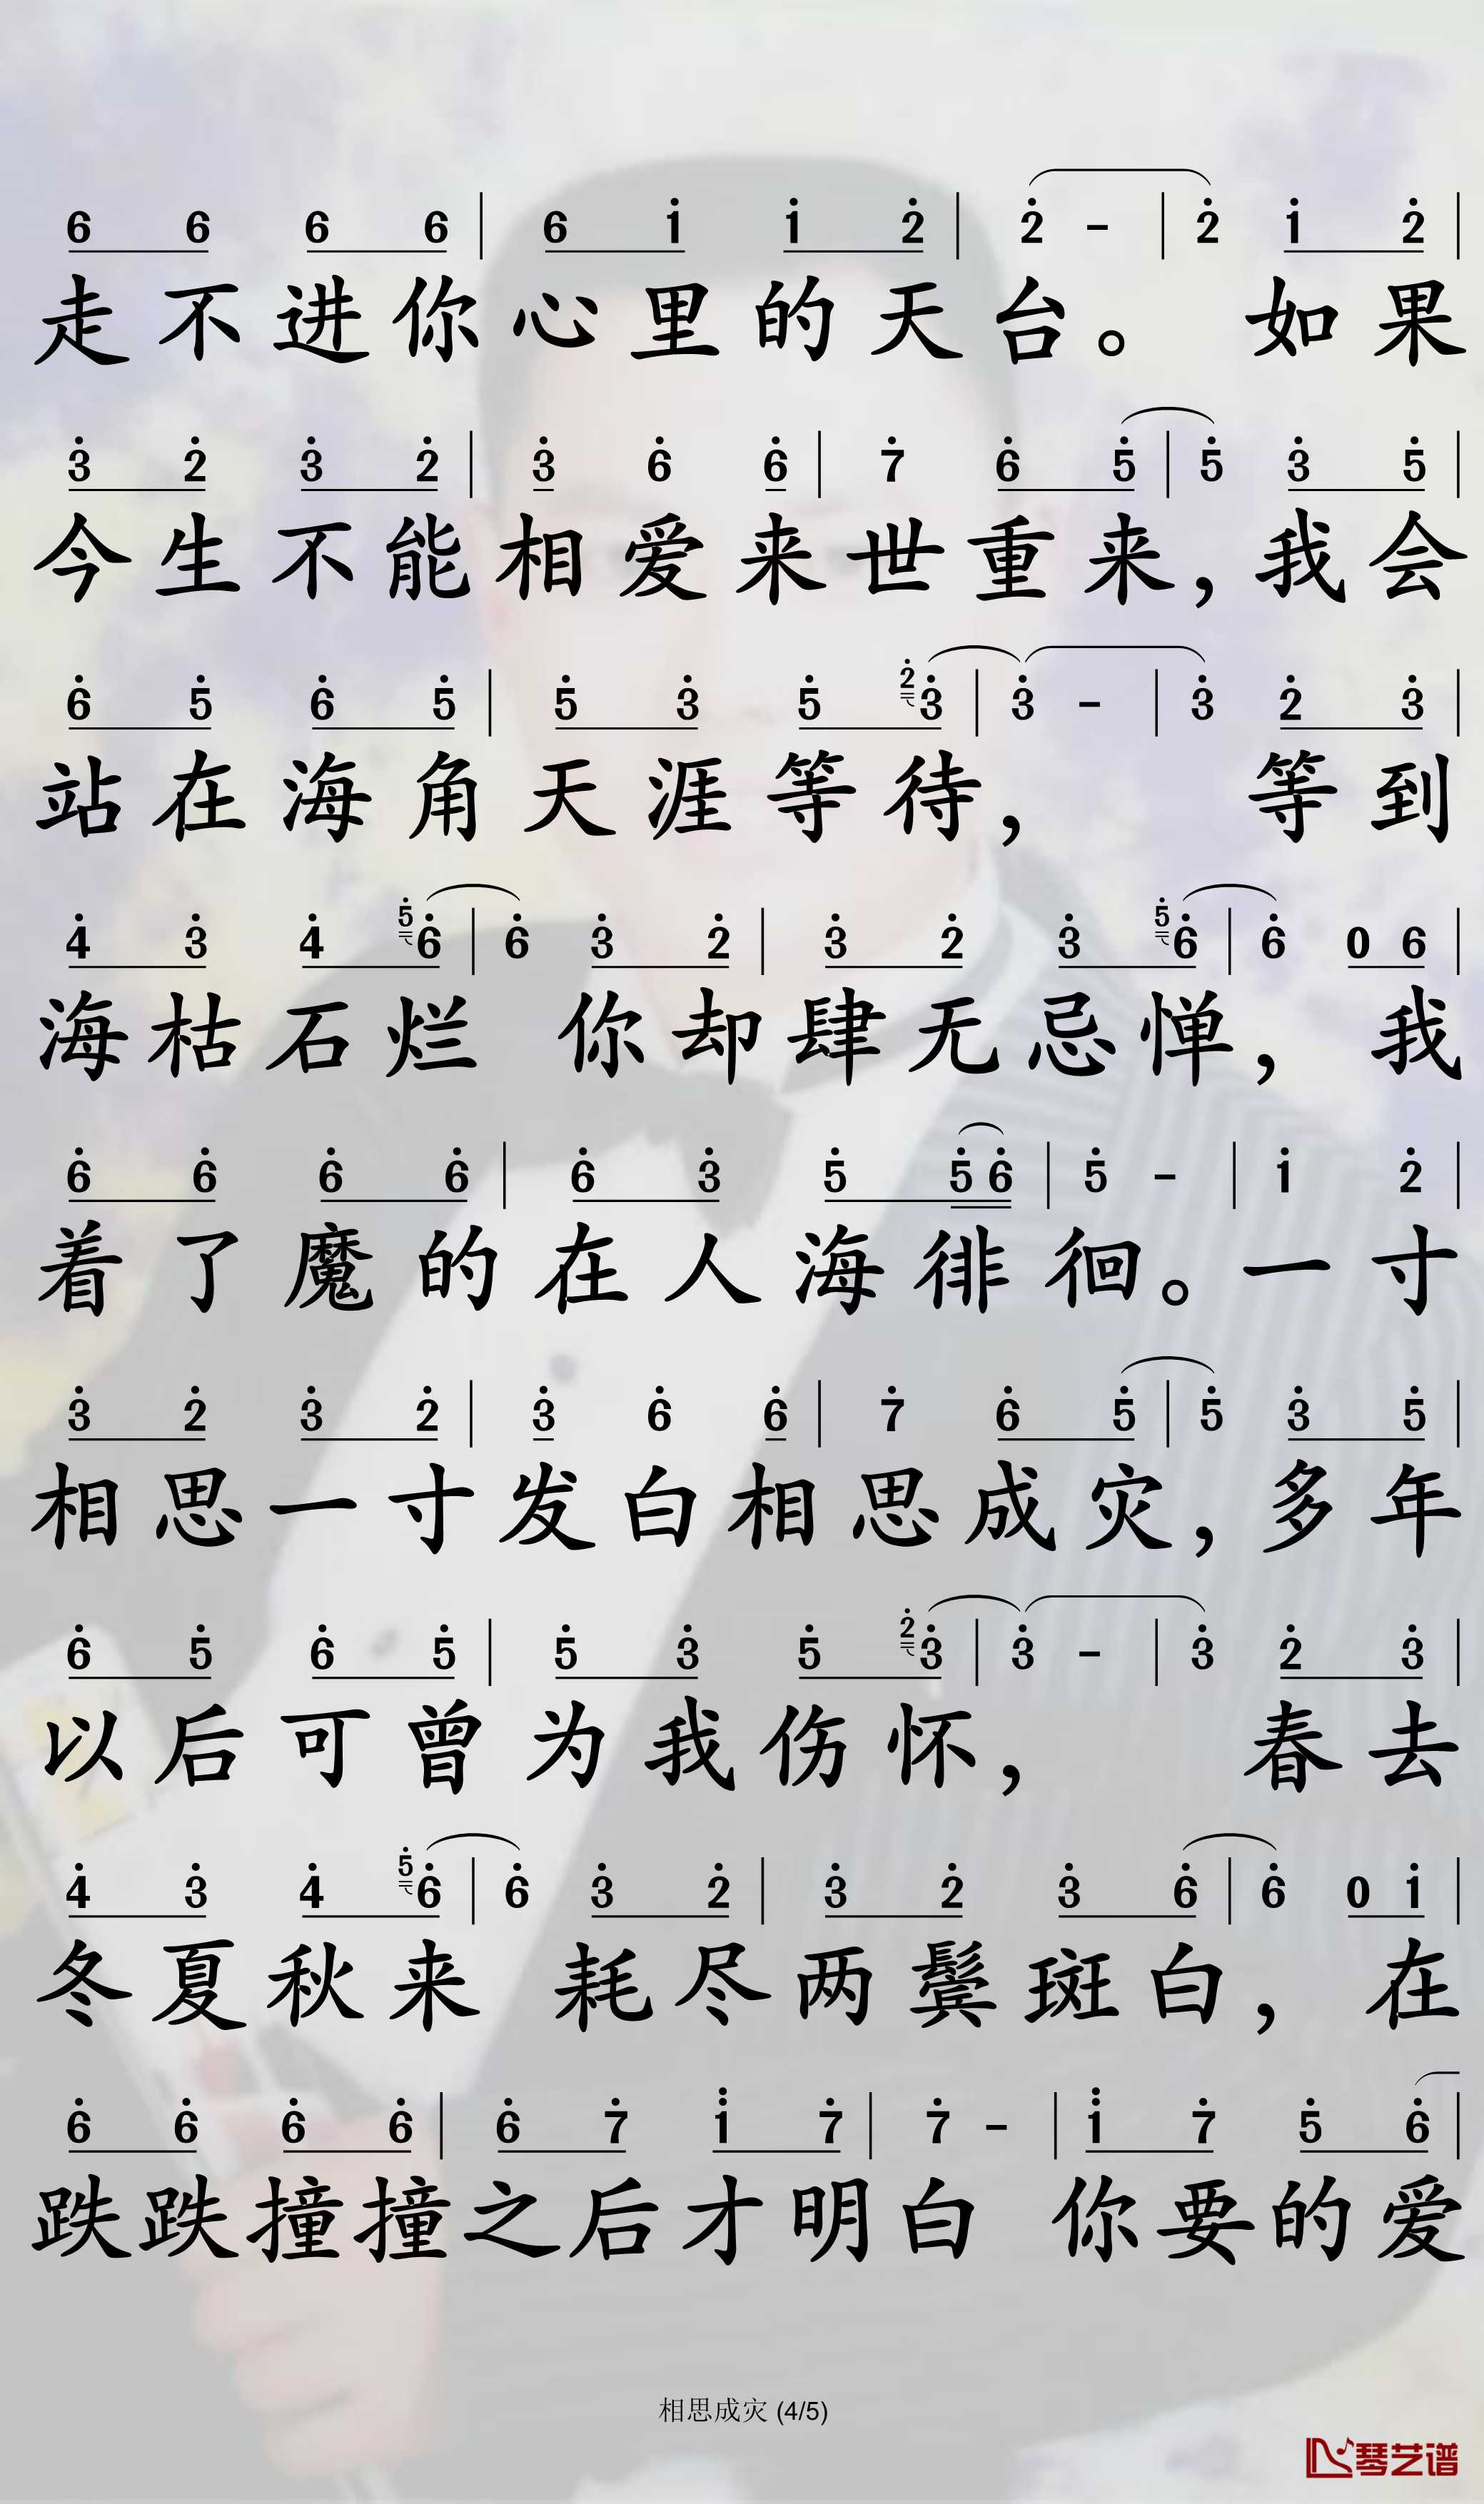 6 6 6 6 | 6 i i 2̇ | 2̇ - | 2̇ i 2̇ |
走不进你心里的天台。 如果
3̇ 2̇ 3̇ 2̇ | 3̇ 6 6̇ | 7̇ 6̇ 5̇ | 5̇ 3̇ 5̇ |
今生不能相爱来世重来,我会
6̇ 5̇ 6̇ 5̇ | 5̇ 3̇ 5̇ 2̇ 3̇ | 3̇ - | 3̇ 2̇ 3̇ |
站在海角天涯等待, 等到
4̇ 3̇ 4̇ 5̇ 6̇ | 6̇ 3̇ 2̇ | 3̇ 2̇ 3̇ 5̇ 6̇ | 6̇ 0 6 |
海枯石烂 你却肆无忌惮, 我
6̇ 6̇ 6̇ 6̇ | 6̇ 3̇ 5̇ 5̇ 6̇ | 5̇ - | i 2̇ |
着了魔的在人海徘徊。一寸
3̇ 2̇ 3̇ 2̇ | 3̇ 6 6̇ | 7̇ 6̇ 5̇ | 5̇ 3̇ 5̇ |
相思一寸发白相思成灾,多年
6̇ 5̇ 6̇ 5̇ | 5̇ 3̇ 5̇ 2̇ 3̇ | 3̇ - | 3̇ 2̇ 3̇ |
以后可曾为我伤怀, 春去
4̇ 3̇ 4̇ 5̇ 6̇ | 6̇ 3̇ 2̇ | 3̇ 2̇ 3̇ 6̇ | 6̇ 0 i |
冬夏秋来 耗尽两鬓斑白, 在
6̇ 6̇ 6̇ 6̇ | 6̇ 7̇ 1̈ 7̇ | 7̇ - | 1̈ 7̇ 5̇ 6̇ |
跌跌撞撞之后才明白 你要的爱
相思成灾 (4/5)
琴艺谱